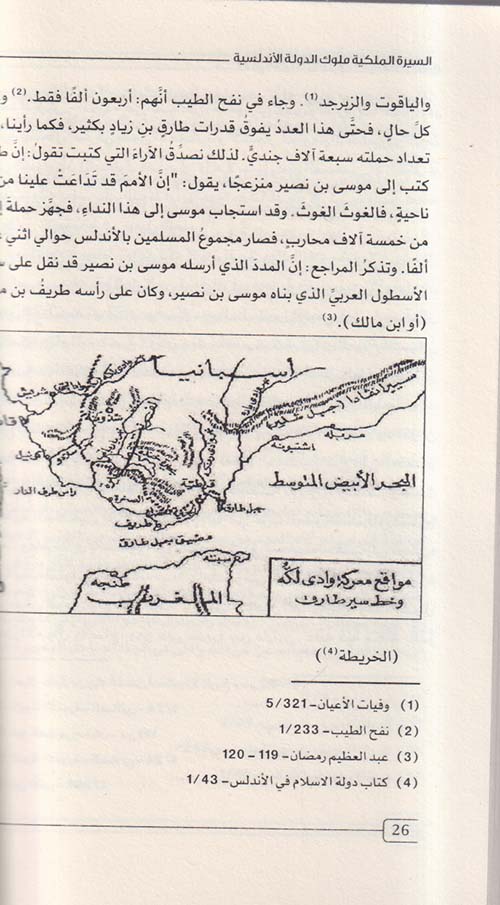 السيرة الملكية ملوك الدولة الأندلسية
والياقوت والزبرجد(1). وجاء في نفح الطيب أنَّهم: أربعون ألفًا فقط.(2) و
كلِّ حالٍ، فحتَّى هذا العددُ يفوقُ قدرات طارقِ بنِ زيادٍ بكثير، فكما رأينا،
تعداد حملته سبعة آلاف جنديٍّ. لذلك نصدِّقُ الآراءَ التي كتبت تقولُ: إنَّ ط
كتب إلى موسى بن نصير منزعجًا، يقول: "إنَّ الأممَ قد تَدَاعَتْ علينا من
ناحيةٍ، فالغوثَ الغوثَ. وقد استجاب موسى إلى هذا النداءِ، فجهَّز حملةً
من خمسة آلاف محاربٍ، فصار مجموعُ المسلمين بالأندلس حوالي اثني
ألفًا. وتذكرُ المراجع: إنَّ المددَ الذي أرسله موسى بن نصير قد نقل على
الأسطول العربيِّ الذي بناه موسى بن نصير، وكان على رأسه طريفُ بن م
(أو ابن مالك).(3)
أسبانيا
شريش
سيرانفادا (جبل شلير)
مربله
اشتبونة
البحر الأبيض المتوسط
راس طرف الغار
الصخرة
جبل طارق
طريف
مضيق جبل طارق
سبته
طنجه
المغرب
مواقع معركة وادى لكه
وخط سير طارق
(الخريطة(4))
(1) وفيات الأعيان- 5/321
(2) نفح الطيب- 1/233
(3) عبد العظيم رمضان- 119 - 120
(4) كتاب دولة الاسلام في الأندلس- 1/43
26